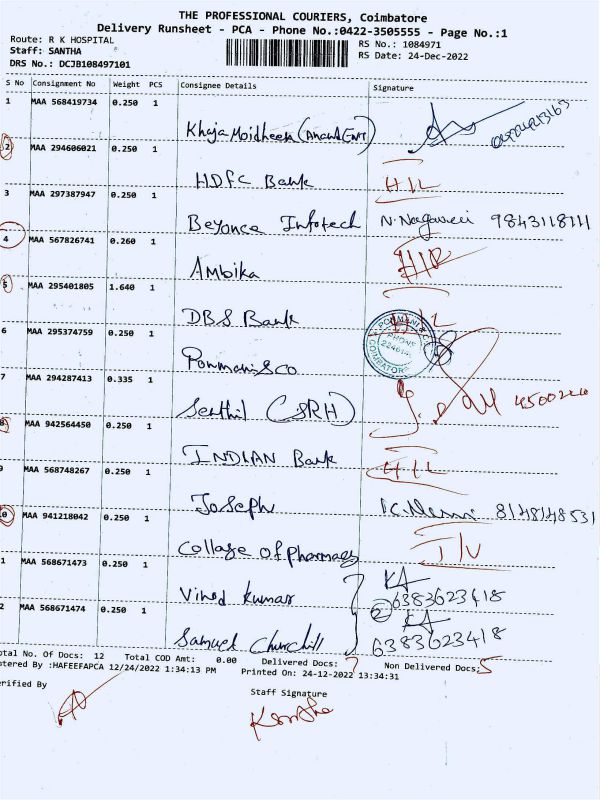 THE PROFESSIONAL COURIERS, Coimbatore
Delivery Runsheet - PCA - Phone No.:0422-3505555 - Page No.:1
Route: R K HOSPITAL
Staff: SANTHA
DRS No.: DCJB108497101
RS No.: 1084971
RS Date: 24-Dec-2022
S No Consignment No Weight PCS Consignee Details Signature
1 MAA 568419734 0.250 1
Khaja Moidheen (Anand Ent)
2 MAA 294606021 0.250 1
HDFC Bank HIL
3 MAA 297387947 0.250 1
Beyonce Infotech N. Nagaveni 9843118111
4 MAA 567826741 0.260 1
Ambika
5 MAA 295401805 1.640 1
DBS Bank
6 MAA 295374759 0.250 1
Ponmani & co PONMANI & CO PHONE COIMBATORE
7 MAA 294287413 0.335 1
Senthil (SRH)
8 MAA 942564450 0.250 1
INDIAN Bank HIL
9 MAA 568748267 0.250 1
Joseph 8148148531
0 MAA 941218042 0.250 1
Collage of pharmacy
1 MAA 568671473 0.250 1
Vinod Kumar 6383623418
2 MAA 568671474 0.250 1 2
Samuel Churchill 6383623418
otal No. Of Docs: 12 Total COD Amt: 0.00 Delivered Docs: 7 Non Delivered Docs: 5
ntered By :HAFEEFAPCA 12/24/2022 1:34:13 PM Printed On: 24-12-2022 13:34:31
erified By
Staff Signature